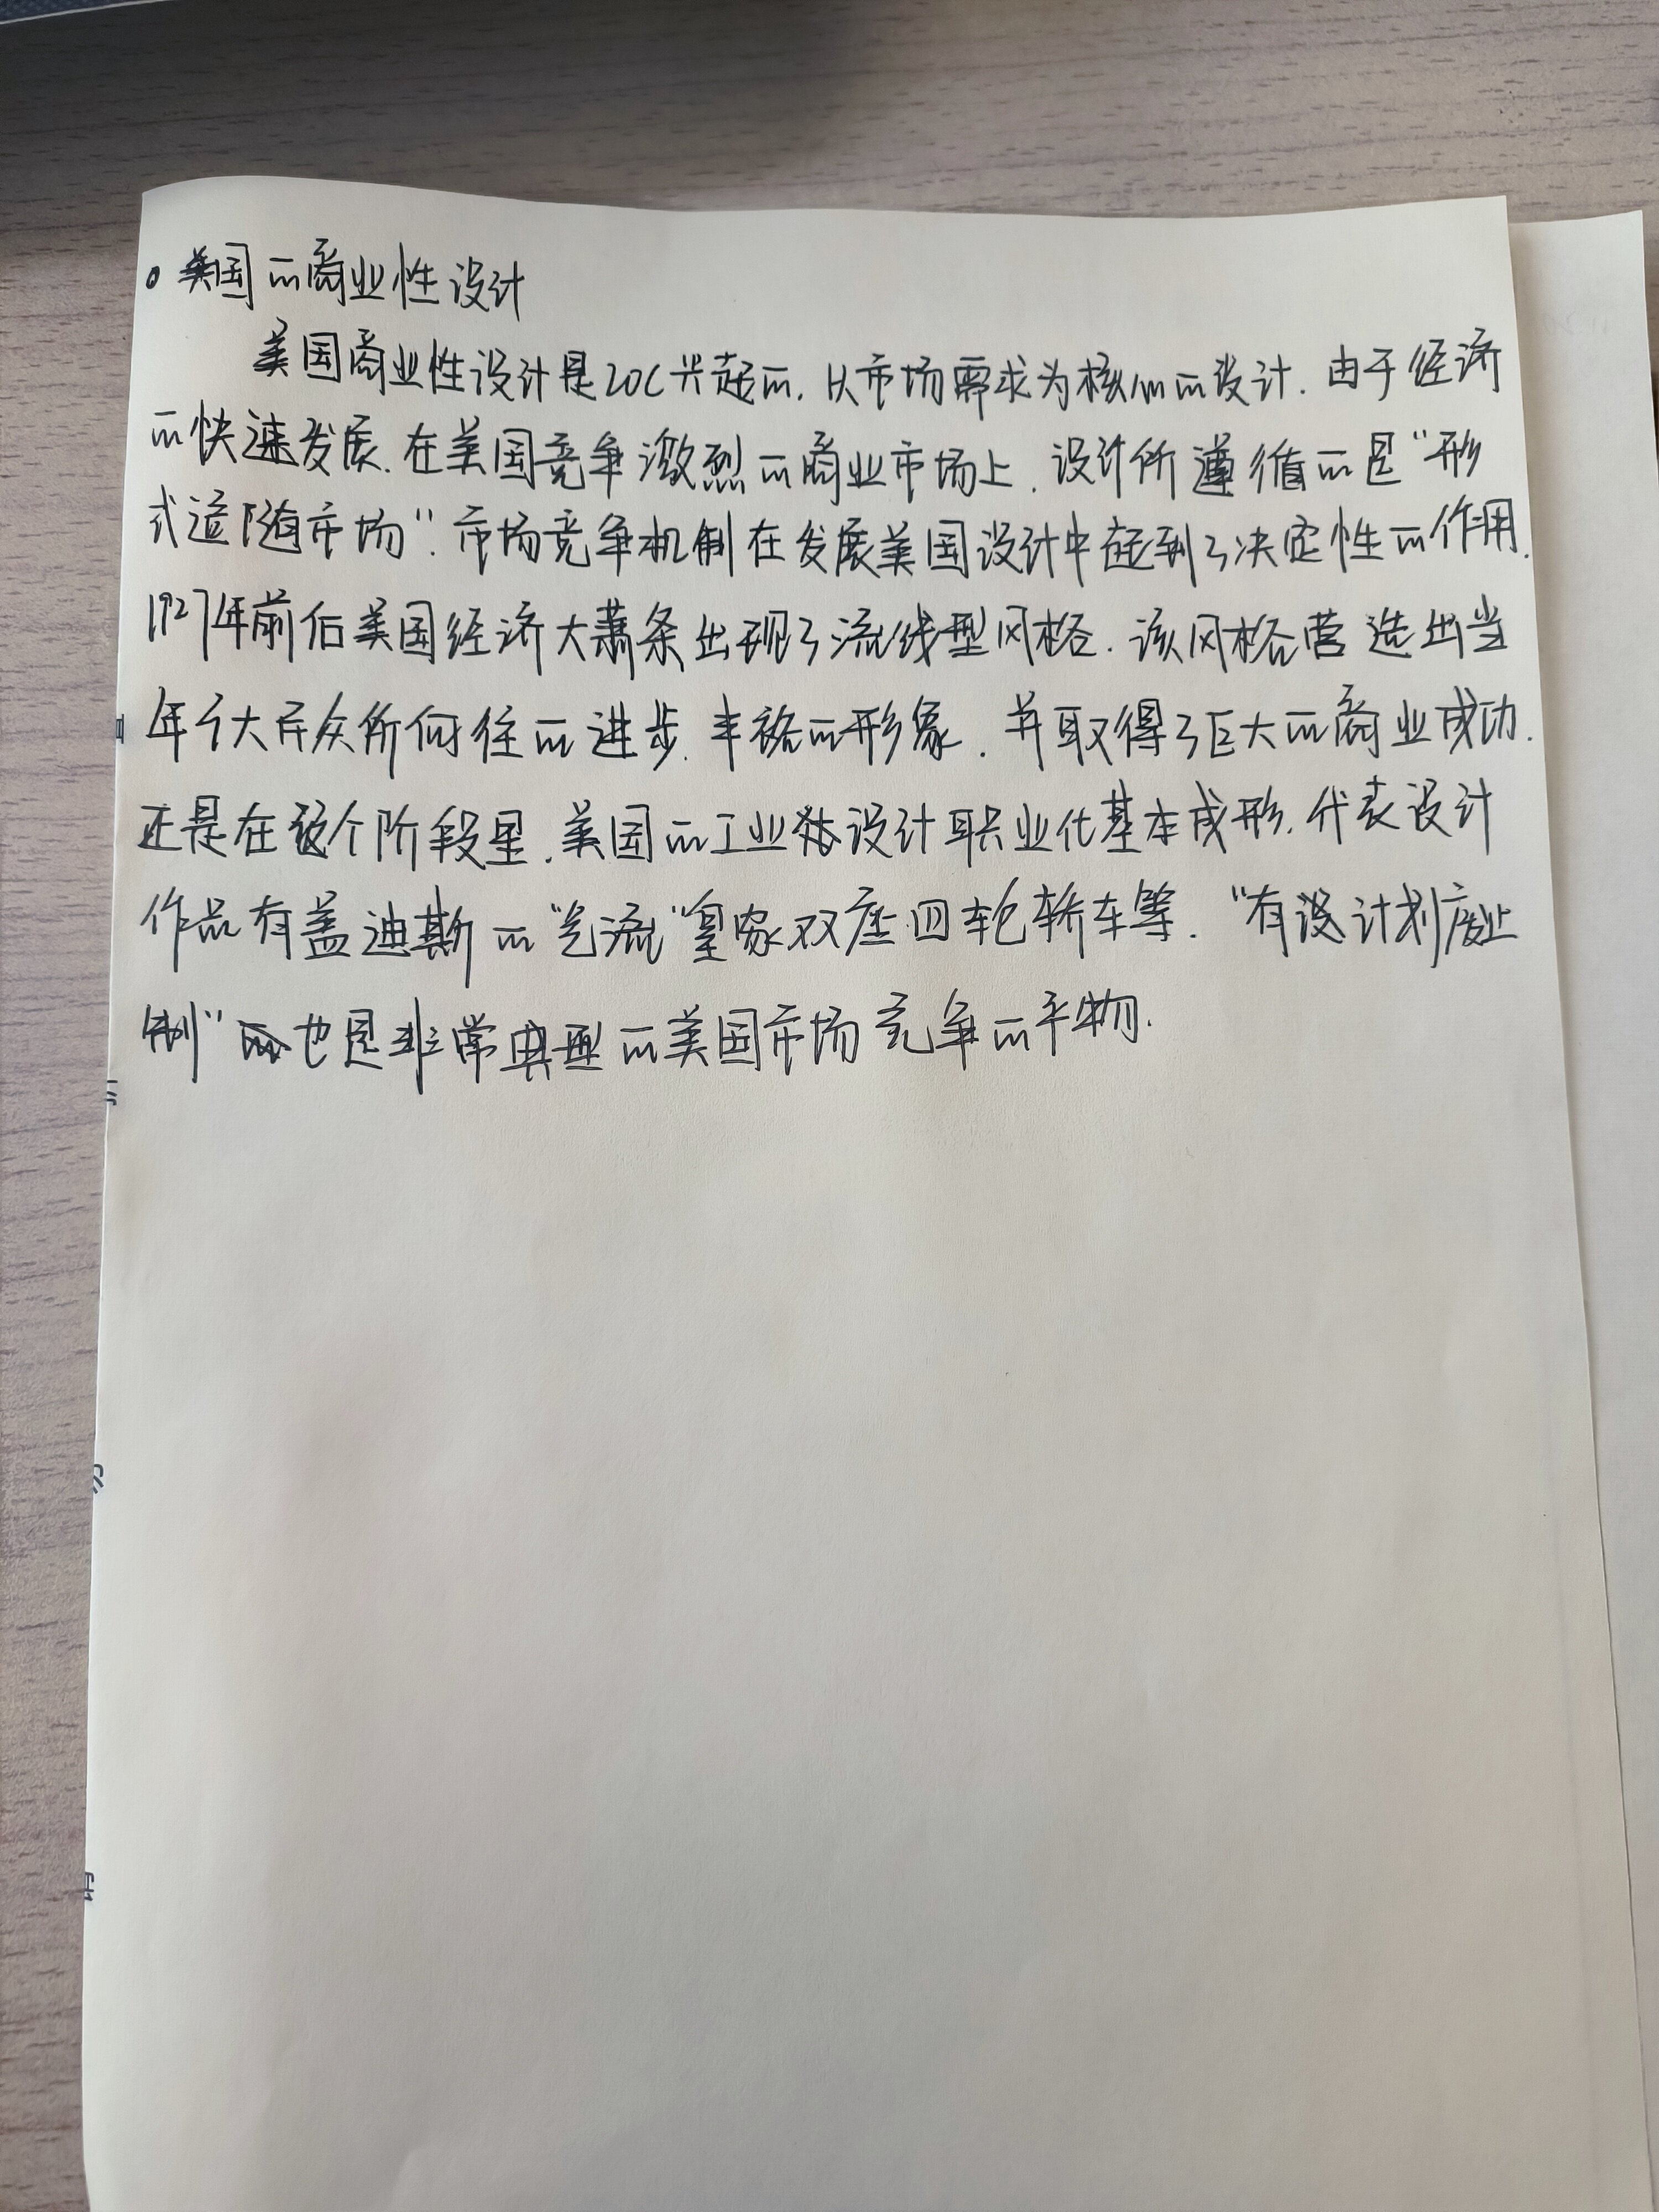 美国的商业性设计
美国商业性设计是20C兴起的,以市场需求为核心的设计.由于经济
的快速发展.在美国竞争激烈的商业市场上.设计所遵循的是“形
式追随市场”.市场竞争机制在发展美国设计中起到了决定性的作用.
1927年前后美国经济大萧条出现了流线型风格.该风格营造出当
年广大民众所向往的进步.丰裕的形象.并取得了巨大的商业成功.
还是在这个阶段里.美国的工业设计职业化基本成形.代表设计
作品有盖迪斯的“气流”皇家双座四轮轿车等.“有设计划废止
制”也是非常典型的美国市场竞争的产物.